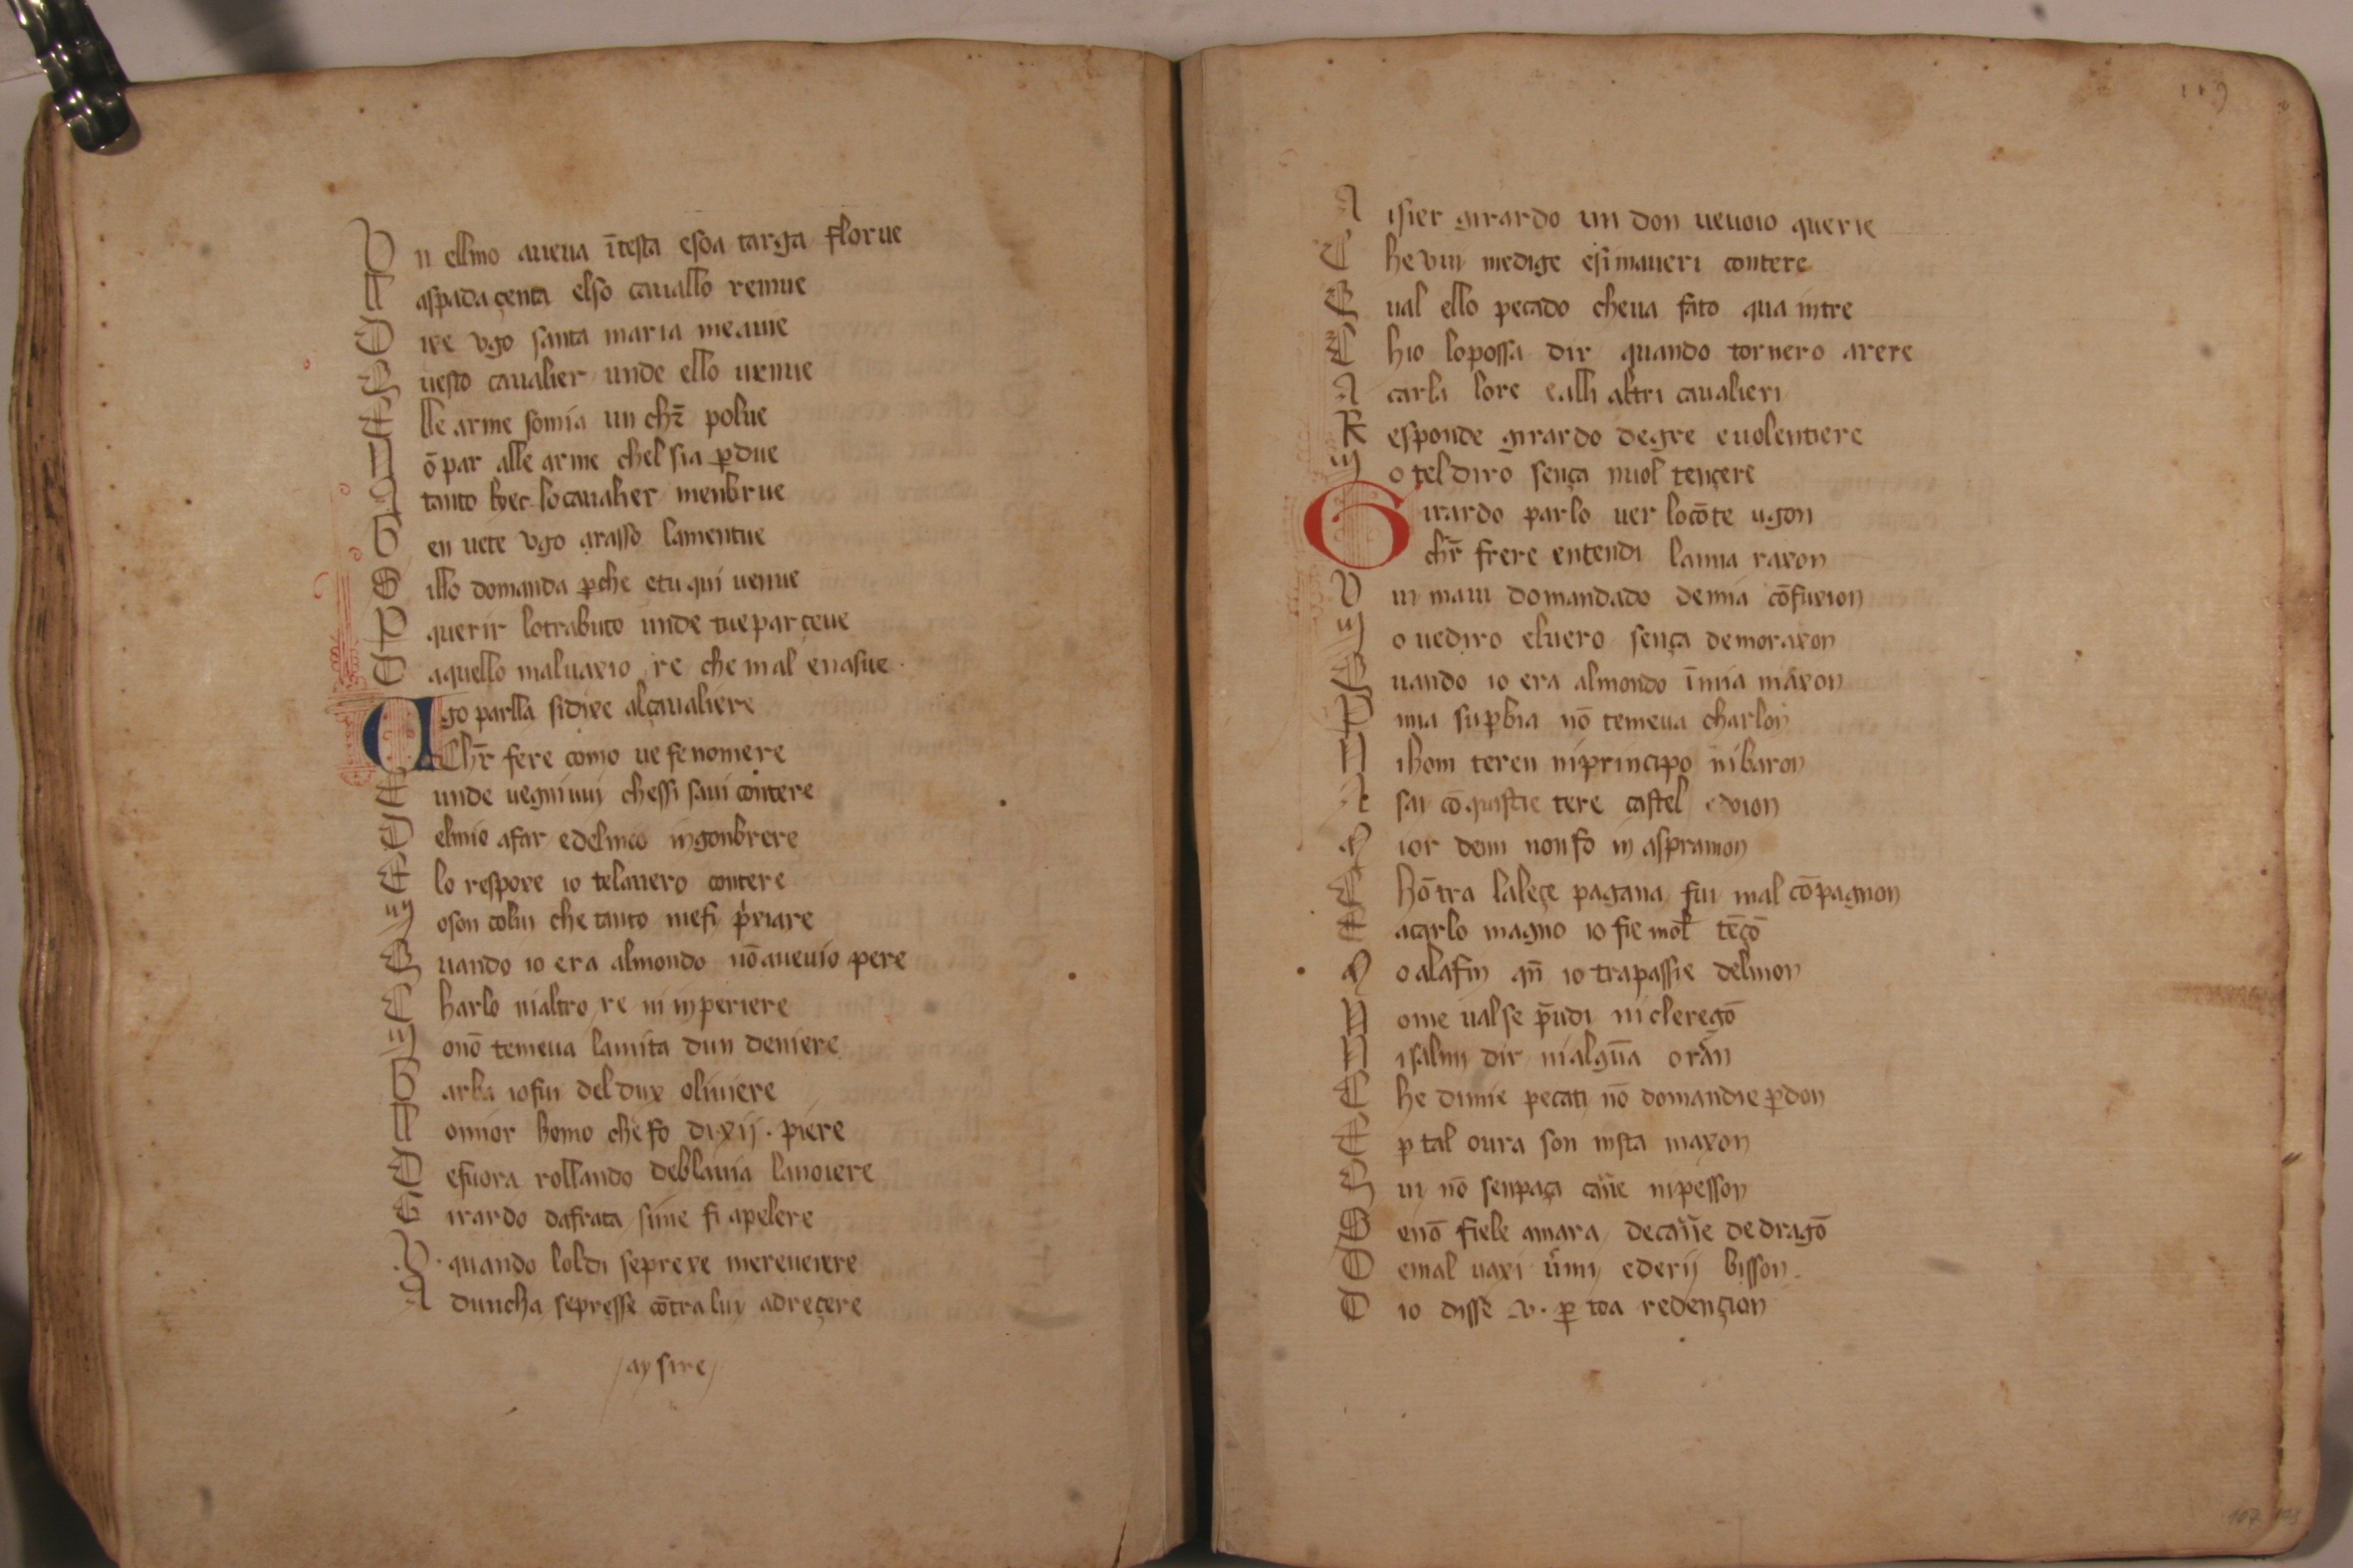 V n ellmo aueua ītesta esoa targa florue
L aspada çenta elso cauallo remue
D ixe vgo santa maria me aiue
Q uesto caualier unde ello uenue
E lle arme somia un chr̄ polue
N ō par alle arme chel sia ꝑdue
A tanto hec lo caualier menbrue
B en uete vgo arasso lamentue
S illo domanda ꝑche etu qui uenue
P querir lo trabuto unde tue parçeue
D aquello maluaxio re che mal enasue
U go parlla si dixe al caualiere
Chr̄ fere como ue fe nomere
E unde uegni uui chessi saui contere
D elmio afar e del mio ingonbrere
E lo respoxe io tel auero contere
I o son colui che tanto me fi prixiare
Q uando io era almondo nō aueuio pere
C harlo ni altro re ni inperiere
I o nō temeua la mita dun deniere
B arba io fui del dux oliuiere
L o mior homo che fo di xij. piere
D e fuora rollando de blauia lanoiere
G irardo da frata si me fi apelere
V. quando loldi se prexe mereueiere
A duncha se presse cōtra luy adreçere
ay sire
119
A i sier girardo un don ue uoio querie
C he vui me dige e si maueri contere
Q ual ello pecado che ua fato qua intre
C hio lo possa dir quando tornero arere
A carla lore e alli altri caualieri
R esponde girardo de gre e uolentiere
I o tel diro sença niuol tençere
G irardo parlo uer lo cōte ugon
chr̄ frere entendi la mia raxon
V ui maui domandado de mia cōfuxion
I o ue diro el uero sença demoraxon
Q uando io era almondo ī mia maxon
P mia suꝑbia nō temeua charlon
N i hom teren ni principo ni baron
A sai cō quistie tere castel e doion
M ior de mi non fo in aspramon
C hōtra la leçe pagana fui mal cōpagnon
E acarlo magno io fie molt tēçō
M o ala fin qn̄ io trapassie del mon
N o me ualse p̄udi ni cleregō
N i salmi dir ni algūa orān
C he di mie pecati nō domandie ꝑdon
E ꝑ tal oura son in sta maxon
Q ui nō senpaça carne ni pesson
S enō fiele amara de carne de dragō
D e mal uaxi u̅mi e de rij bisson
D io disse v. ꝑ toa redençion
107